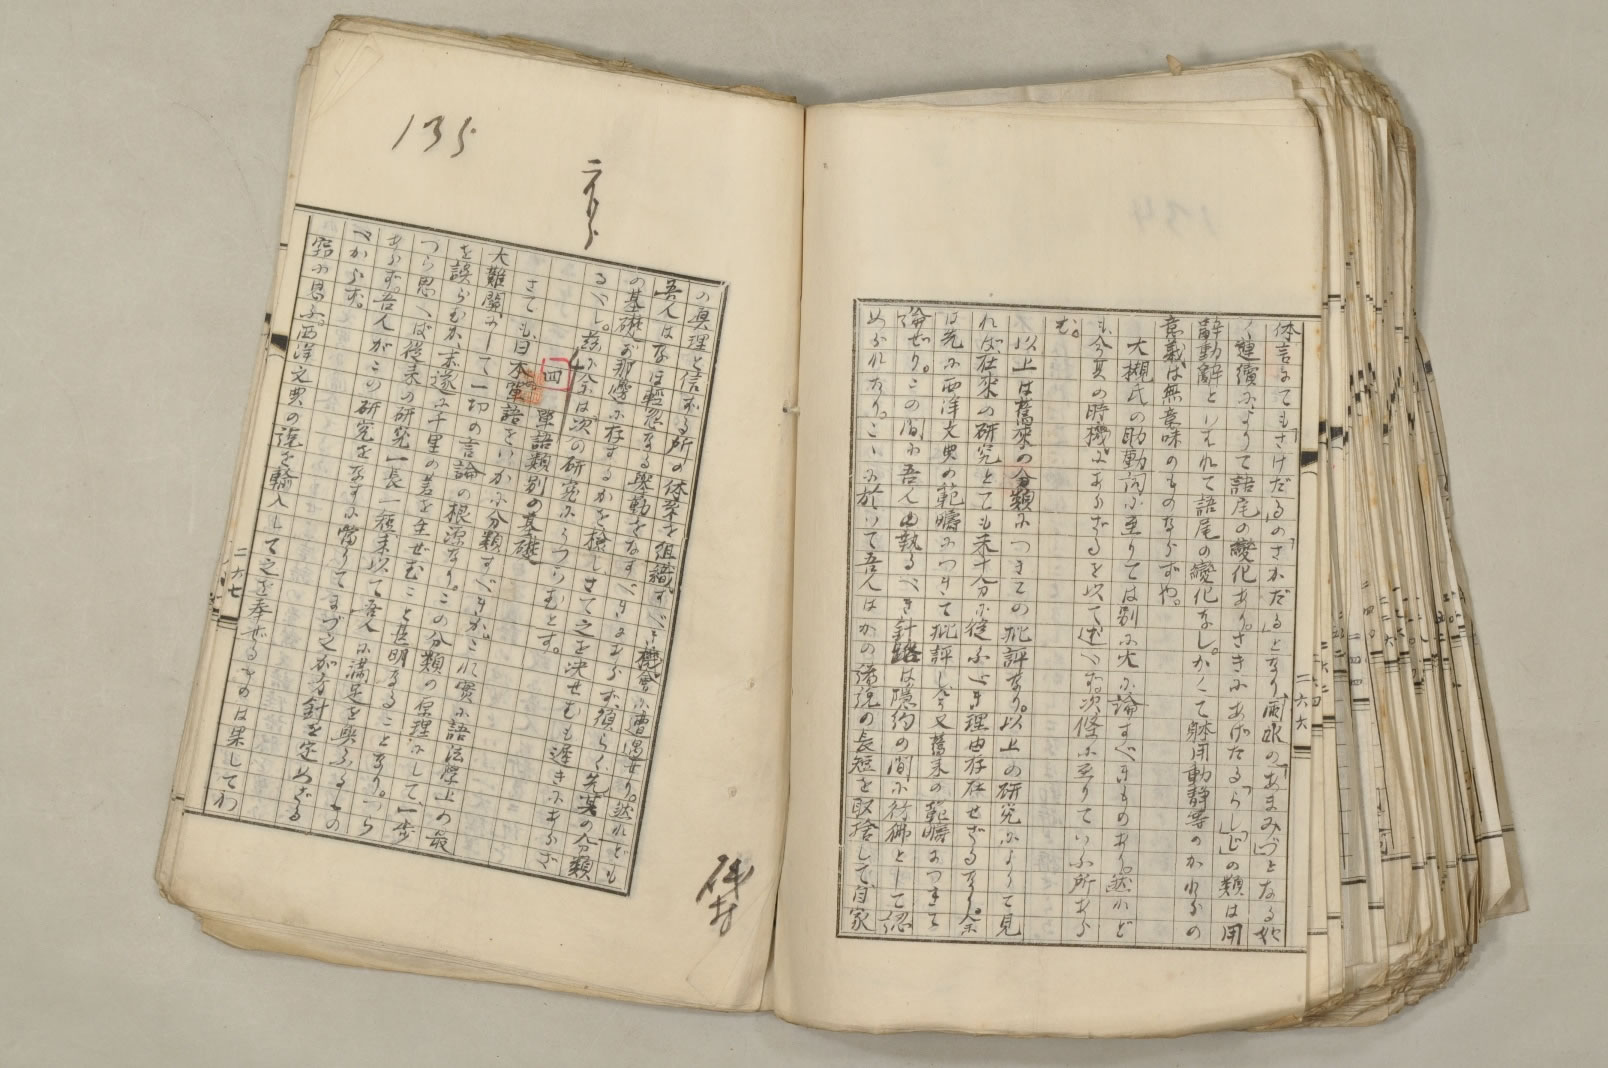 体言にても「さけだる」の「さかだる」となり「雨水」の「あまみづ」となる如
く連續によりて語尾の變化あり。さきにあげたる「らし」「じ」の類は用
辭動辭といはれて語尾の變化なし。かくて體用動静等のかれらの
意義は無意味のものならずや。
大槻氏の助動詞に至りては別に大に論すべきものあり。然れど
も、今其の時機にあらざるを以て述べず。次條に至りていふ所あら
む。
以上は舊來の分類につきての批評なり。以上の研究によりて見
れば在來の研究とても未十分に從ふべき理由存在せざるなり。余
は先に西洋文典の範疇につきて批評し、今又舊来の範疇につきて
論ぜり。この間に吾人の執るべき針路は隱約の間に彷彿として認
められたり。こゝに於いて吾人はかの諸説の長短を取捨して、自家
二六六
の眞理と信ずる所の体系を組織すべき機會に遭遇せり。然れども
吾人はなほ輕忽なる擧動をなすべきにあらず、須らく先其の分類
の基礎が那邊に存するかを檢しさて之を決せむも遲きにあらざ
るべし。茲に余は次の研究にうつらむとす。
四 單語類別の基礎
さても、日本單語をいかに分類すべきか。これ實に語法學上の最
大難關にして一切の言論の根源なり。この分類の原理にして、一歩
を誤らむか、末遂に千里の差を生ぜむこと甚明なることなり。つら
つら思へば從來の研究一長一短未以て吾人に滿足を與ふるもの
あらず。吾人がこの研究をなすに當りてまづ之が方針を定めざる
べからず。
窃に思ふ。西洋文典の説を輸入して之を奉ぜるものは果してわ
二六七
135